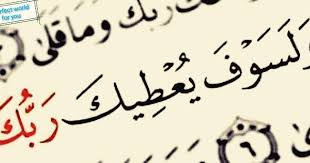 rfect world
for you
ربك وما قلىٰ
وَلَسَوْفَ يُعْطِيكَ رَبُّكَ
٦